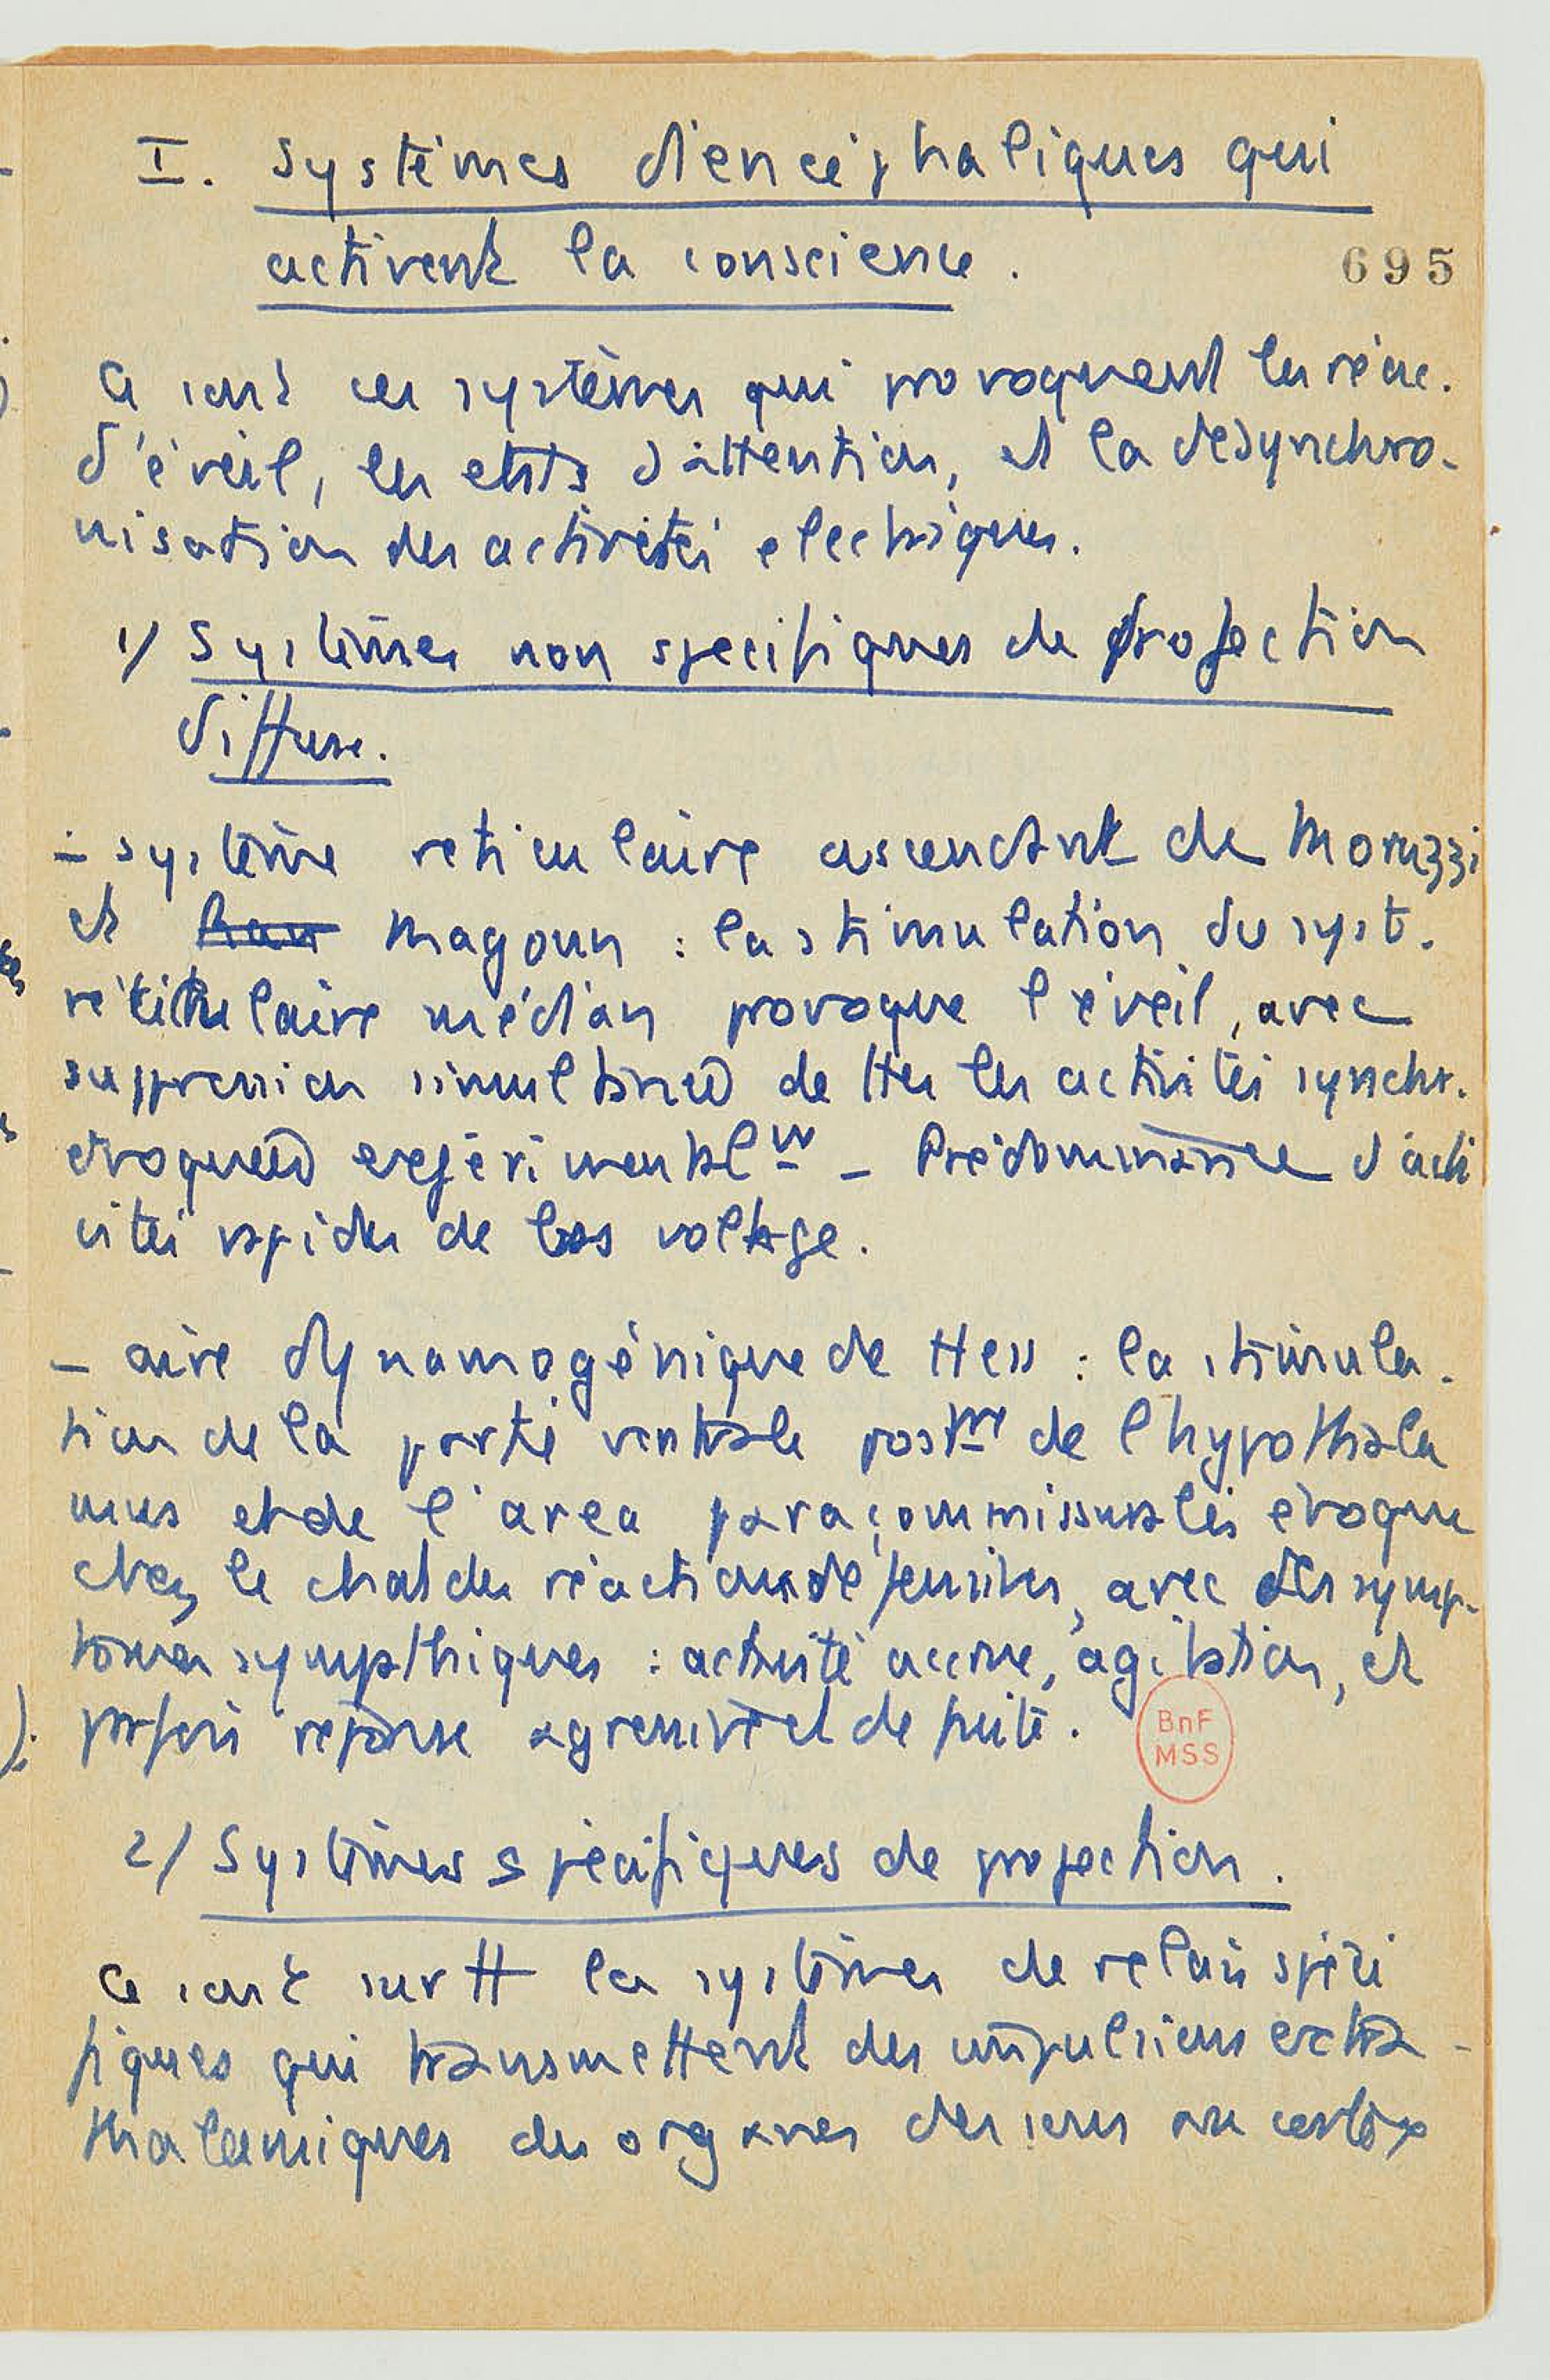 I. Systèmes diencéphaliques qui
activent la conscience.
695
Ce sont ces systèmes qui provoquent les réac.
d'éveil, les etats d'attention, et la desynchro-
nisation des activités electriques.
1/ Systèmes non specifiques de projection
diffuse.
- système reticulaire ascendant de Moruzzi
et Magoun : la stimulation du syst.
réticulaire médian provoque l'éveil, avec
suppression simultanée de ttes les activités synchr.
évoquées expérimentalᵐ - Prédominance d'acti
vités rapides de bas voltage.
- aire dynamogénique de Hess : la stimula-
tion de la partie ventrale postʳᵉ de l'hypothala
mus et de l'area paracommissuralis évoque
chez le chat des réactions défensives, avec des symp-
tomes sympathiques : activité accrue, agitation, et
parfois réponse agressive et de fuite.
BnF
MSS
2/ Systèmes spécifiques de projection.
Ce sont surtt les systèmes de relais spéci
fiques qui transmettent des impulsions extra-
thalamiques des organes des sens au cortex